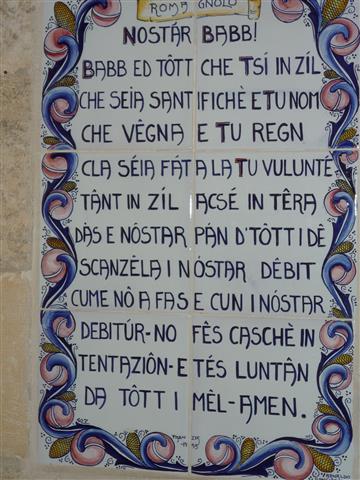 ROMAGNOLO
NOSTÁR BABB!
BABB ED TÔTT CHE TSÍ IN ZÍL
CHE SEIA SANTIFICHÈ E TU NOM
CHE VÊGNA E TU REGN
CLA SÉIA FÁTA LA TU VULUNTÉ
TÂNT IN ZÍL ACSÉ IN TÊRA
DÀS E NÓSTAR PÀN D'TÔTT I DÈ
SCANZÈLA I NÓSTAR DÉBIT
CUME NÔ A FAS E CUN I NÓSTAR
DEBITÚR-NO FÊS CASCHÈ IN
TENTAZIÔN-E TÉS LUNTÂN
DA TÔTT I MÈL-AMEN.